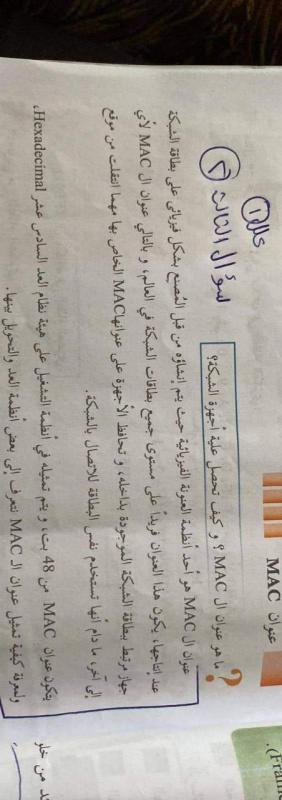 عنوان MAC
(Frame
ما هو عنوان ال MAC ؟ و كيف تحصل علية أجهزة الشبكة؟
سؤال الثالث
عنوان ال MAC هو أحد أنظمة العنونة الفيزيائية حيث يتم إنشاؤه من قبل المُصنع بشكل فيزيائي على بطاقة الشبكة
عند إنتاجها، يكون هذا العنوان فريداً على مستوى جميع بطاقات الشبكة في العالم، و بالتالي عنوان ال MAC لأي
جهاز مرتبط ببطاقة الشبكة الموجودة بداخله، و تحافظ الأجهزة على عنوانها MAC الخاص بها مهما انتقلت من موقع
إلى آخر، ما دام أنها تستخدم نفس البطاقة للاتصال بالشبكة.
يتكون عنوان MAC من 48 بت، و يتم تمثيله في أنظمة التشغيل على هيئة نظام العد السادس عشر Hexadecimal،
ولمعرفة كيفية تمثيل عنوان الـ MAC نتعرف إلى بعض أنظمة العد والتحويل بينها.
من خلو